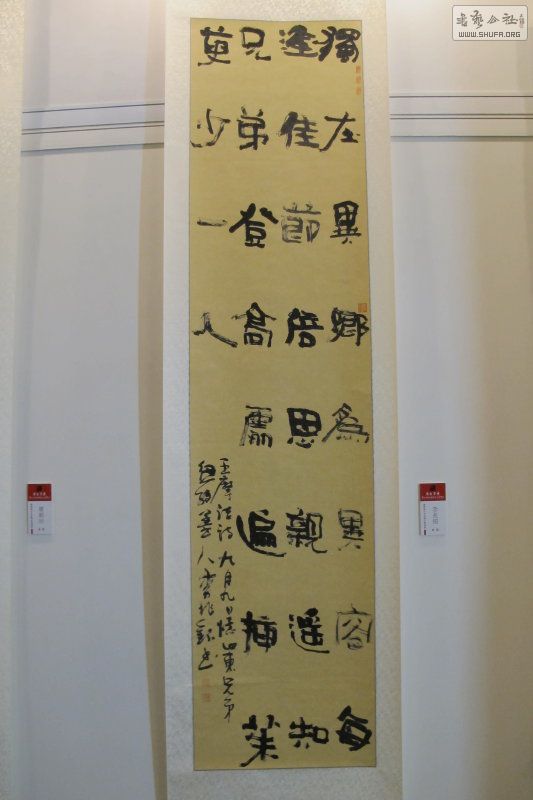 獨在異鄉為異客每
逢佳節倍思親遥知
兄弟登高處遍插茱
萸少一人
王摩詰詩九月九日憶山東兄弟
書藝公社
WWW.SHUFA.ORG